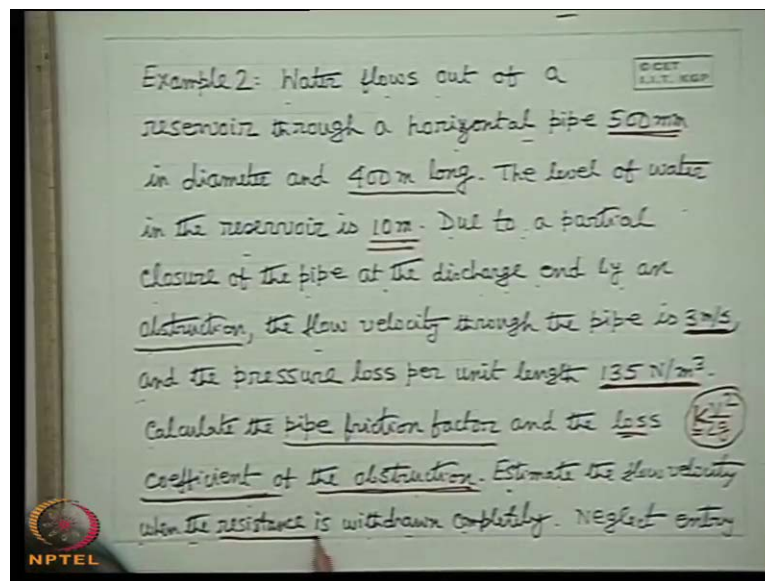 Example 2: Water flows out of a
© CET
I.I.T. KGP
reservoir through a horizontal pipe 500mm
in diameter and 400m long. The level of water
in the reservoir is 10m. Due to a partial
closure of the pipe at the discharge end by an
obstruction, the flow velocity through the pipe is 3m/s,
and the pressure loss per unit length 135 N/m³.
Calculate the pipe friction factor and the loss KV²/2g
coefficient of the obstruction. Estimate the flow velocity
when the resistance is withdrawn completely. Neglect entry
NPTEL